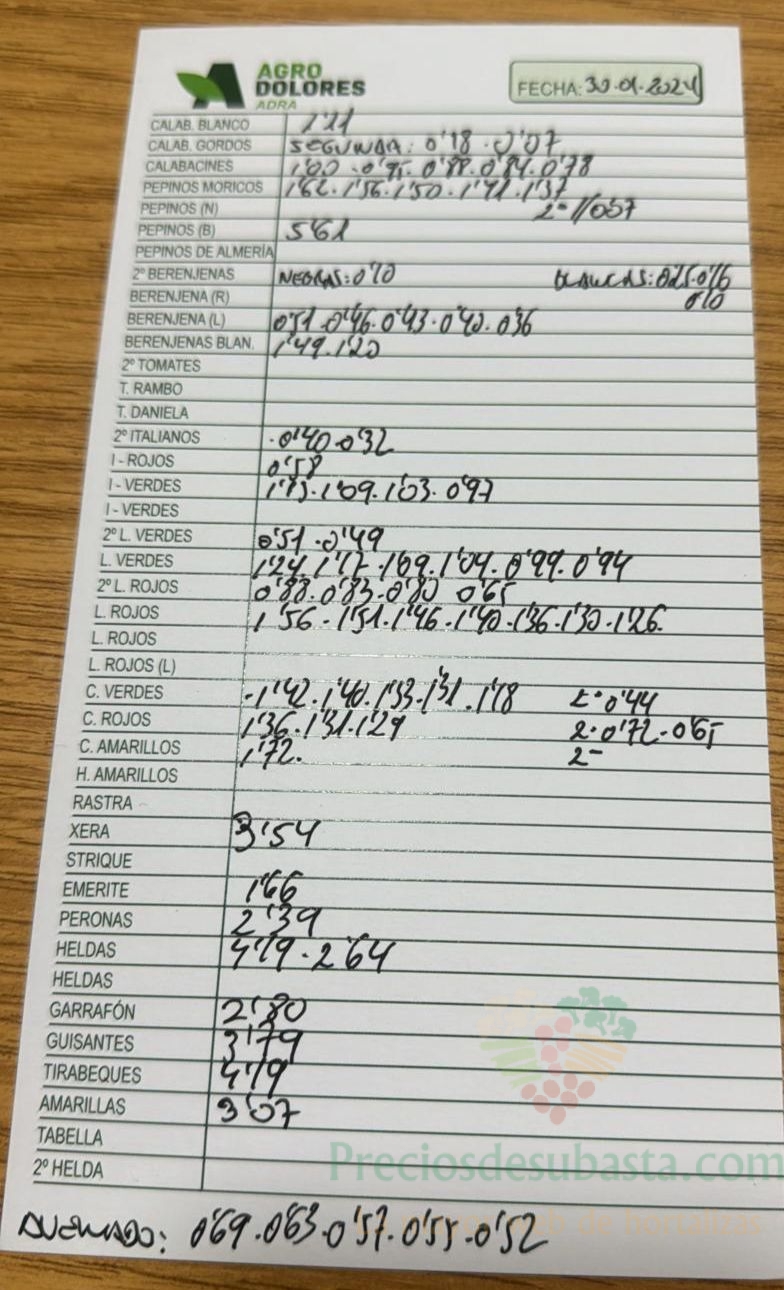 AGRO
DOLORES
ADRA
FECHA: 30-01-2024
CALAB. BLANCO 1'21
CALAB. GORDOS SEGUNDA: 0'18 - 0'07
CALABACINES 1'00 - 0'95 - 0'88 - 0'84 - 0'78
PEPINOS MORICOS 1'62 - 1'56 - 1'50 - 1'41 - 1'37
PEPINOS (N) 2ª //0'57
PEPINOS (B) 5'61
PEPINOS DE ALMERÍA
2º BERENJENAS NEGRAS: 0'10 BLANCAS: 0'25-0'16
BERENJENA (R) 0'10
BERENJENA (L) 0'51 - 0'46 - 0'43 - 0'42 - 0'36
BERENJENAS BLAN. 1'49 - 1'20
2º TOMATES
T. RAMBO
T. DANIELA
2º ITALIANOS - 0'40 - 0'32
I - ROJOS 0'58
I - VERDES 1'13 - 1'09 - 1'03 - 0'97
I - VERDES
2º L. VERDES 0'51 - 0'49
L. VERDES 1'24 - 1'17 - 1'09 - 1'04 - 0'99 - 0'94
2º L. ROJOS 0'88 - 0'83 - 0'80 0'65
L. ROJOS 1'56 - 1'51 - 1'46 - 1'40 - 1'36 - 1'30 - 1'26
L. ROJOS
L. ROJOS (L)
C. VERDES - 1'42 - 1'40 - 1'33 - 1'31 - 1'18 2ª 0'44
C. ROJOS 1'36 - 1'31 - 1'29 2- 0'72 - 0'65
C. AMARILLOS 1'72- 2-
H. AMARILLOS
RASTRA
XERA 3'54
STRIQUE
EMERITE 1'66
PERONAS 2'39
HELDAS 4'19 - 2'64
HELDAS
GARRAFÓN 2'80
GUISANTES 3'79
TIRABEQUES 4'19
AMARILLAS 3'07
TABELLA
2º HELDA
Preciosdesubasta.com
de hortalizas
QUEMADO: 0'69 - 0'63 - 0'57 - 0'55 - 0'52